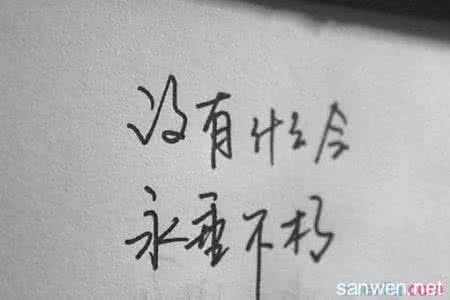 没有什么会
永垂不朽
sanwen.net